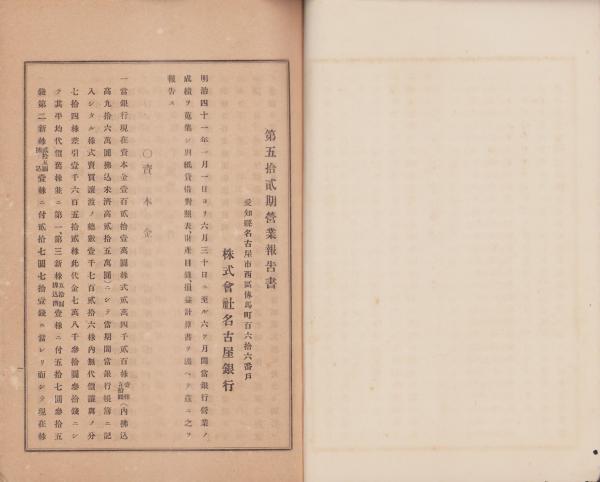 第五拾貳期營業報告書
愛知縣名古屋市西區傳馬町百六拾六番戶
株式會社名古屋銀行
明治四十一年一月一日ヨリ六月三十日ニ至ル六ケ月間當銀行營業ノ
成績ヲ蒐集シ別紙貸借對照表、財產目錄損益計算書ヲ添ヘテ茲ニ之ヲ
報告ス
〇資本金
一當銀行現在資本金壹百貳拾壹萬圓株式貳萬四千貳百株 壹株五拾圓 (內拂込
高九拾六萬圓拂込未濟高貳拾五萬圓)ニシテ當期間當銀行帳簿ニ記
入シタル株式賣買讓渡ノ總數壹千七百貳拾六株內無代價讓與ノ分
七拾四株差引壹千六百五拾貳株此代金七萬八千參拾圓參拾錢ニシ
テ其平均代價舊株並ニ第一、第三新株 五拾圓拂込濟 壹株ニ付五拾七圓參拾五
錢第二新株 貳拾五圓拂込 壹株ニ付貳拾七圓七拾壹錢ニ當レリ而シテ現在株